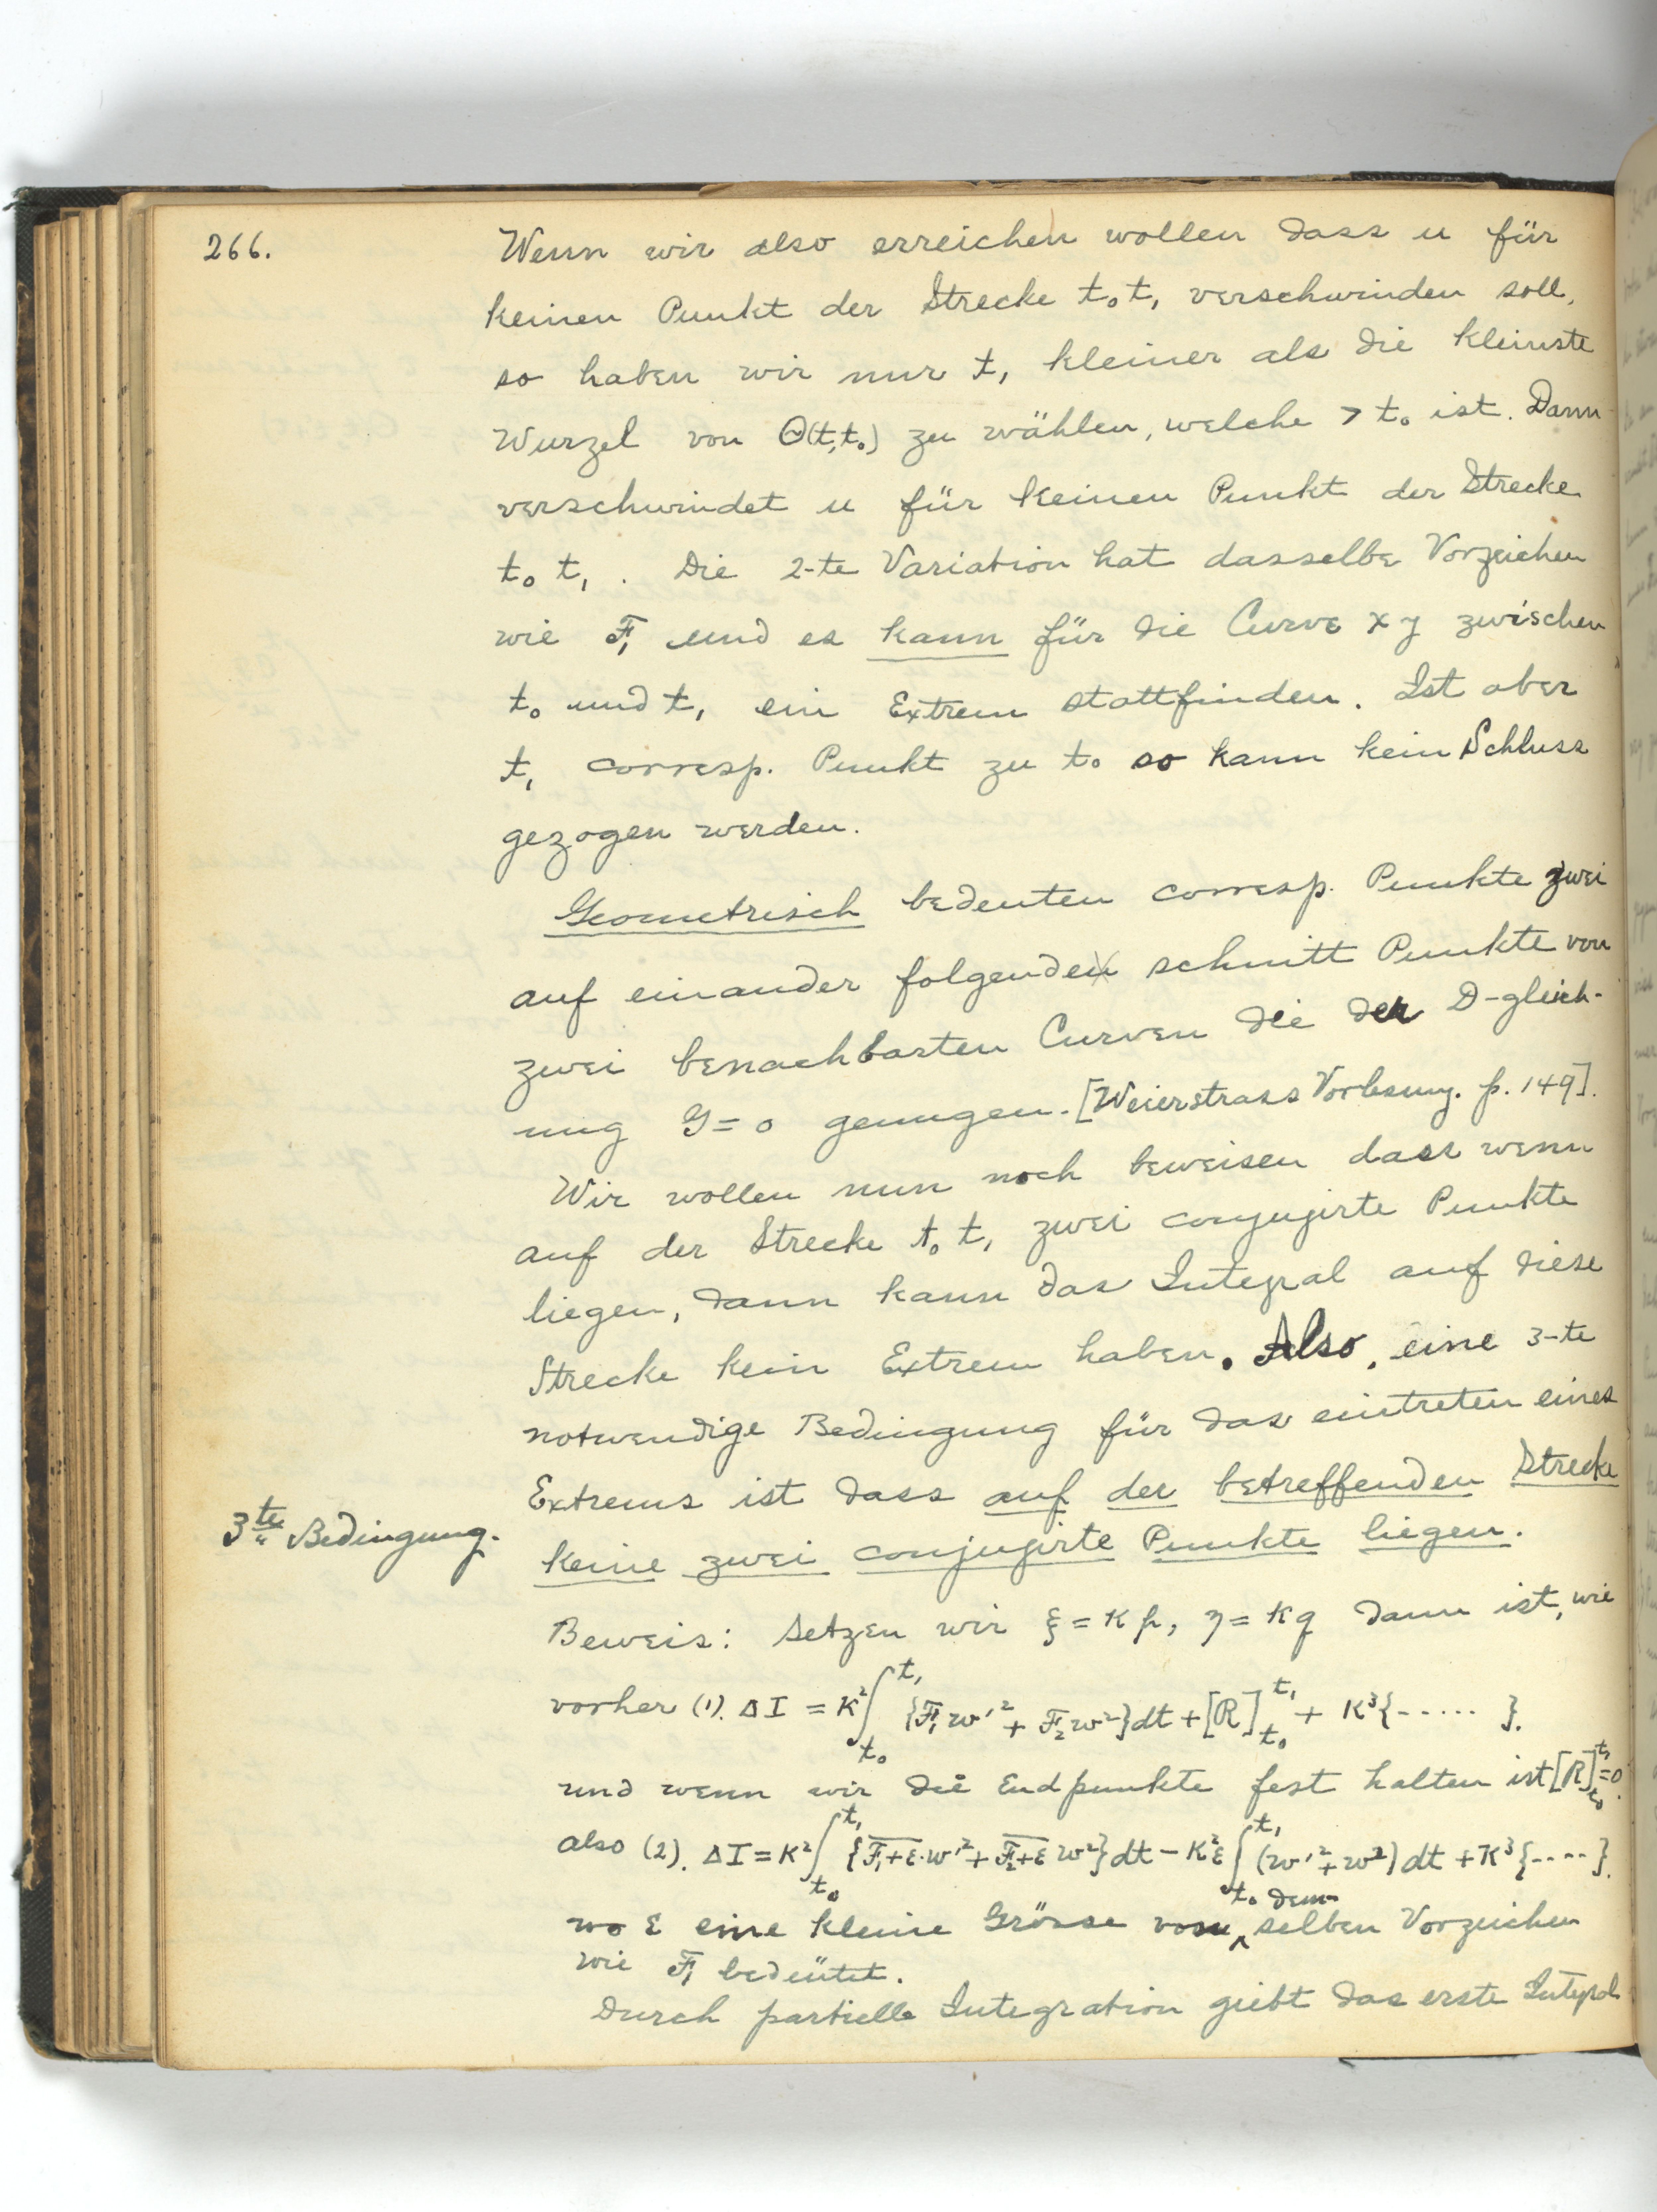 266.
Wenn wir also erreichen wollen dass u für
keinen Punkt der Strecke t₀t₁ verschwinden soll,
so haben wir nur t₁ kleiner als die kleinste
Wurzel von Θ(t,t₀) zu wählen, welche > t₀ ist. Dann
verschwindet u für keinen Punkt der Strecke
t₀ t₁. Die 2-te Variation hat dasselbe Vorzeichen
wie F₁ und es kann für die Curve x y zwischen
t₀ und t₁ ein Extrem stattfinden. Ist aber
t₁ corresp. Punkt zu t₀ so kann kein Schluss
gezogen werden.
Geometrisch bedeuten corresp. Punkte zwei
auf einander folgende schnitt Punkte von
zwei benachbarten Curven die der D-gleich-
ung G=0 genugen. [Weierstrass Vorlesung. p. 149].
Wir wollen nun noch beweisen dass wenn
auf der Strecke t₀ t₁ zwei conjugirte Punkte
liegen, dann kann das Integral auf diese
Strecke kein Extrem haben. Also, eine 3-te
notwendige Bedingung für das eintreten eines
Extrems ist dass auf der betreffenden Strecke
3te Bedingung.
keine zwei conjugirte Punkte liegen.
Beweis: Setzen wir ξ = κp, η = κq dann ist, wie
vorher (1). ΔI = κ²∫_{t₀}^{t₁} {F₁w'² + F₂w²}dt + [R]_{t₀}^{t₁} + κ³{-----}.
und wenn wir die Endpunkte fest halten ist [R]_{t₀}^{t₁}=0.
also (2). ΔI = κ²∫_{t₀}^{t₁} {F̅₁̅+̅ε̅·w'² + F̅₂̅+̅ε̅ w²}dt − κ²ε∫_{t₀}^{t₁} (w'²+w²)dt + κ³{----}.
wo ε eine kleine Grösse von demselben Vorzeichen
wie F₁ bedeutet.
Durch partielle Integration giebt das erste Integral